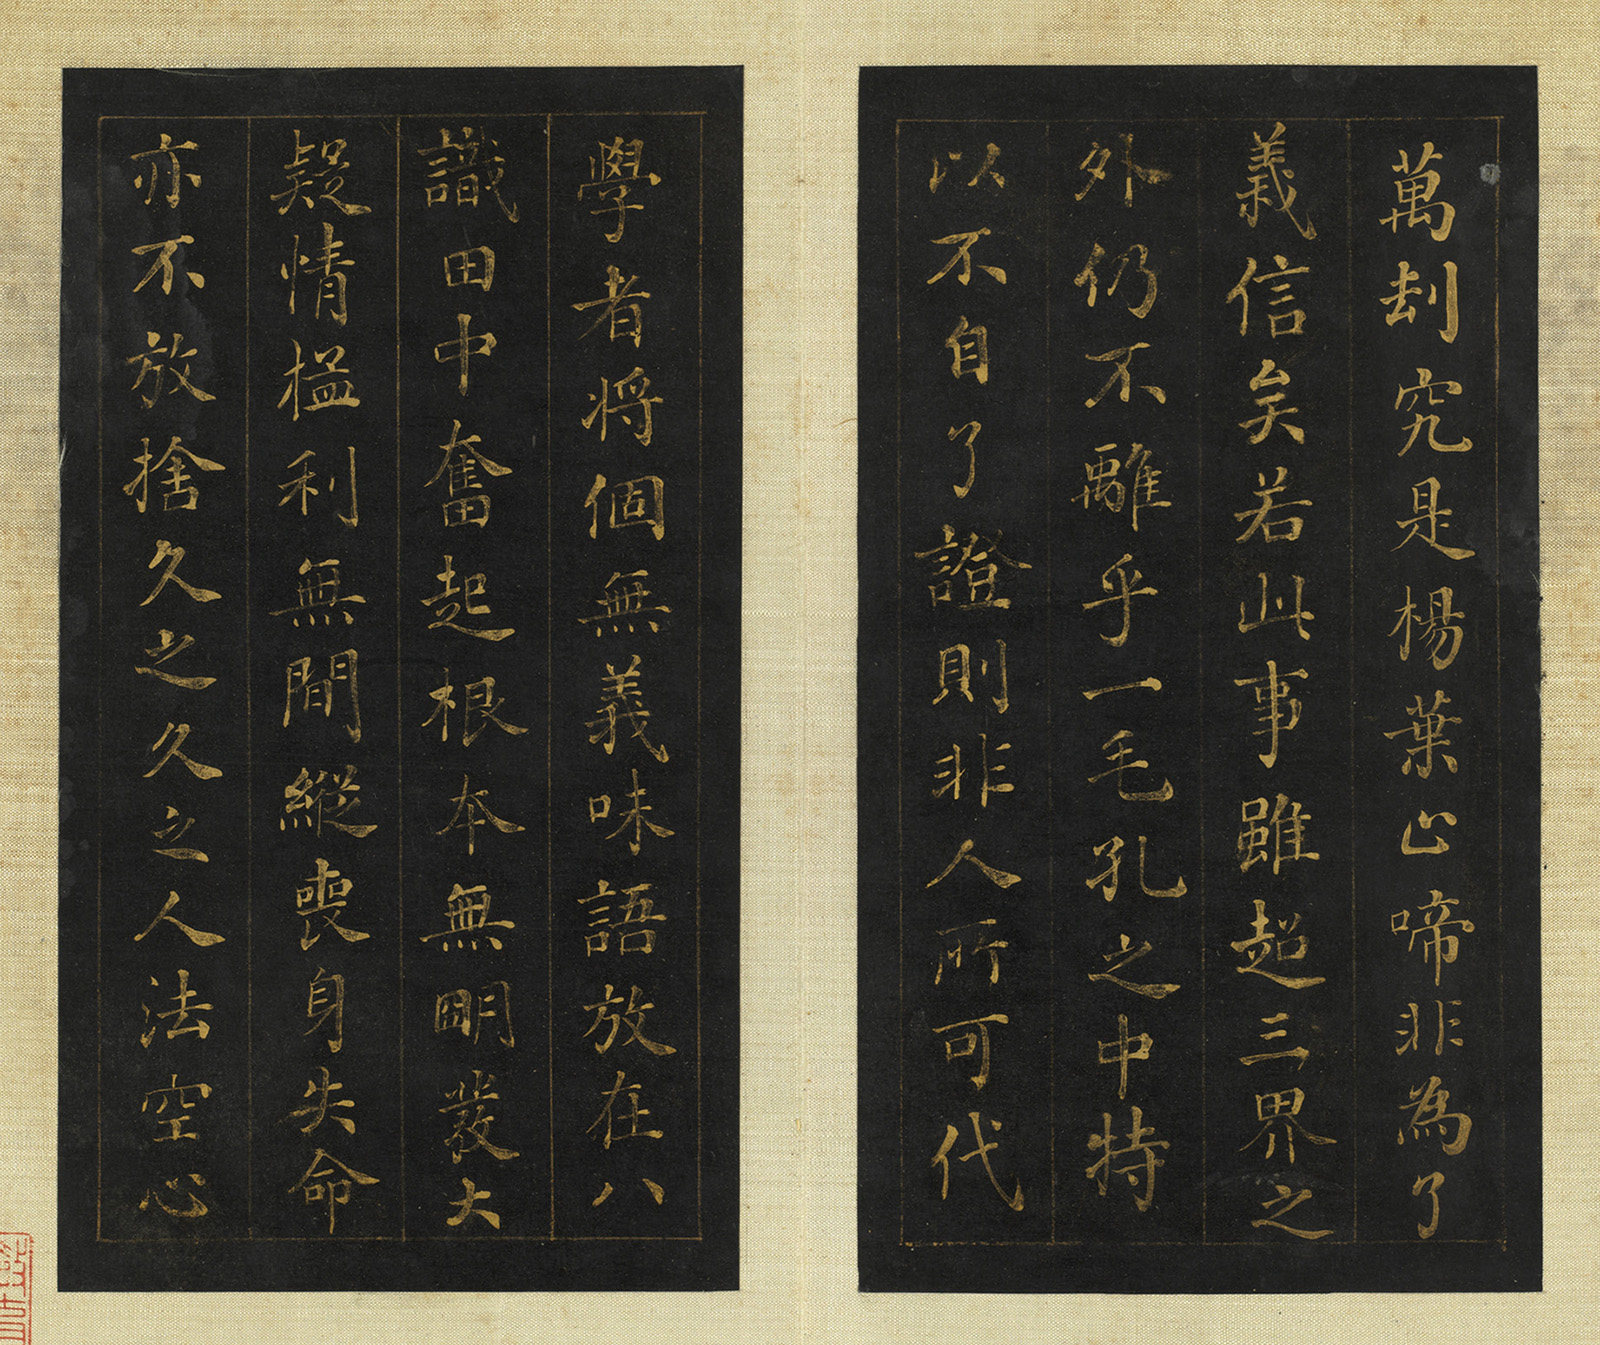 萬刦究是楊葉止啼非為了
義信矣若此事雖超三界之
外仍不離乎一毛孔之中特
以不自了證則非人所可代
學者將個無義味語放在八
識田中奮起根本無明發大
疑情榲利無間縱喪身失命
亦不放捨久之久之人法空心